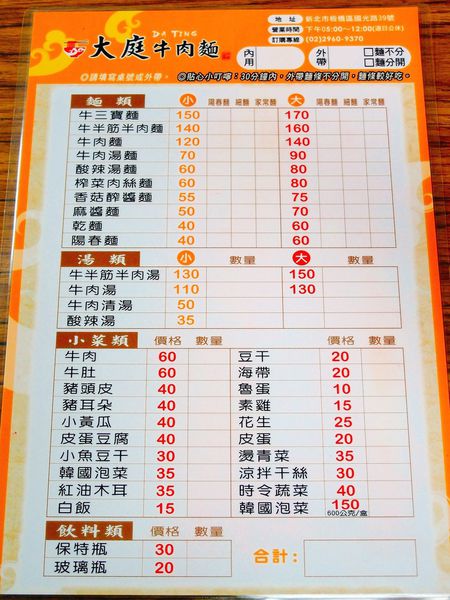 DA TING
大庭牛肉麵
地址 新北市板橋區國光路39號
營業時間 下午05:00~12:00(週日公休)
訂購專線 (02)2960-9370
內用 外帶 □麵不分 □麵分開
◎請填寫桌號或外帶。 ◎貼心小叮嚀:30分鐘內,外帶麵條不分開,麵條較好吃。
麵類 小 陽春麵 細麵 家常麵 大 陽春麵 細麵 家常麵
牛三寶麵 150 170
牛半筋半肉麵 140 160
牛肉麵 120 140
牛肉湯麵 70 90
酸辣湯麵 60 80
榨菜肉絲麵 60 80
香菇醡醬麵 55 75
麻醬麵 50 70
乾麵 40 60
陽春麵 40 60
湯類 小 數量 大 數量
牛半筋半肉湯 130 150
牛肉湯 110 130
牛肉清湯 50
酸辣湯 35
小菜類 價格 數量 價格 數量
牛肉 60 豆干 20
牛肚 60 海帶 20
豬頭皮 40 魯蛋 10
豬耳朵 40 素雞 15
小黃瓜 40 花生 25
皮蛋豆腐 40 皮蛋 20
小魚豆干 30 燙青菜 35
韓國泡菜 35 涼拌干絲 30
紅油木耳 35 時令蔬菜 40
白飯 15 韓國泡菜 150
600公克/盒
飲料類 價格 數量
保特瓶 30 合計:
玻璃瓶 20